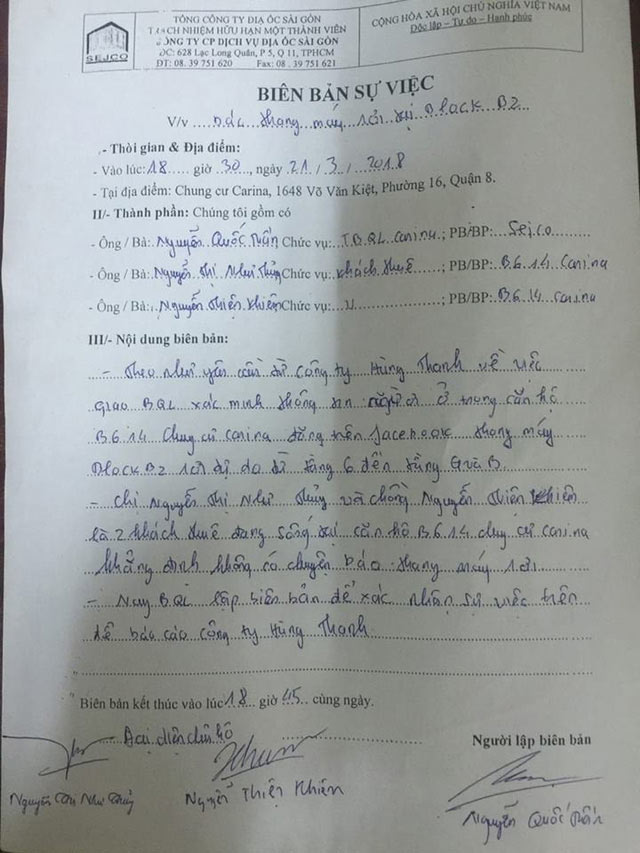 TỔNG CÔNG TY ĐỊA ỐC SÀI GÒN
TRÁCH NHIỆM HỮU HẠN MỘT THÀNH VIÊN
CÔNG TY CP DỊCH VỤ ĐỊA ỐC SÀI GÒN
ĐC: 628 Lạc Long Quân, P 5, Q 11, TPHCM
ĐT: 08. 39 751 620 Fax: 08. 39 751 621
SEJCO
CỘNG HÒA XÃ HỘI CHỦ NGHĨA VIỆT NAM
Độc lập – Tự do – Hạnh phúc
BIÊN BẢN SỰ VIỆC
V/v báo thang máy rơi tại Block B2
.- Thời gian & Địa điểm:
- Vào lúc: 18 giờ 30, ngày 21/3/2018
- Tại địa điểm: Chung cư Carina, 1648 Võ Văn Kiệt, Phường 16, Quận 8.
II/- Thành phần: Chúng tôi gồm có
- Ông / Bà: Nguyễn Quốc Tuấn Chức vụ: T.BQL Carina; PB/BP: Sejco
- Ông / Bà: Nguyễn Thị Như Thủy Chức vụ: Khách thuê; PB/BP: B6.14 Carina
- Ông / Bà: Nguyễn Thiện Khiêm Chức vụ: 〃; PB/BP: B.6.14 Carina
III/- Nội dung biên bản:
- Theo như yêu cầu từ công ty Hùng Thanh về việc
giao BQL xác minh thông tin người ở trong căn hộ
B.6.14 Chung cư Carina đăng trên facebook thang máy
Block B2 rơi tự do từ tầng 6 đến tầng G và B.
- Chị Nguyễn Thị Như Thủy và chồng Nguyễn Thiện Khiêm
là 2 khách thuê đang sống tại căn hộ B.6.14 chung cư Carina
khẳng định không có chuyện báo thang máy rơi.
- Nay BQL lập biên bản để xác nhận sự việc trên
để báo cáo công ty Hùng Thanh.
Biên bản kết thúc vào lúc 18 giờ 45 cùng ngày.
Đại diện chủ hộ
Người lập biên bản
Nguyễn Thị Như Thủy
Nguyễn Thiện Khiêm
Nguyễn Quốc Tuấn